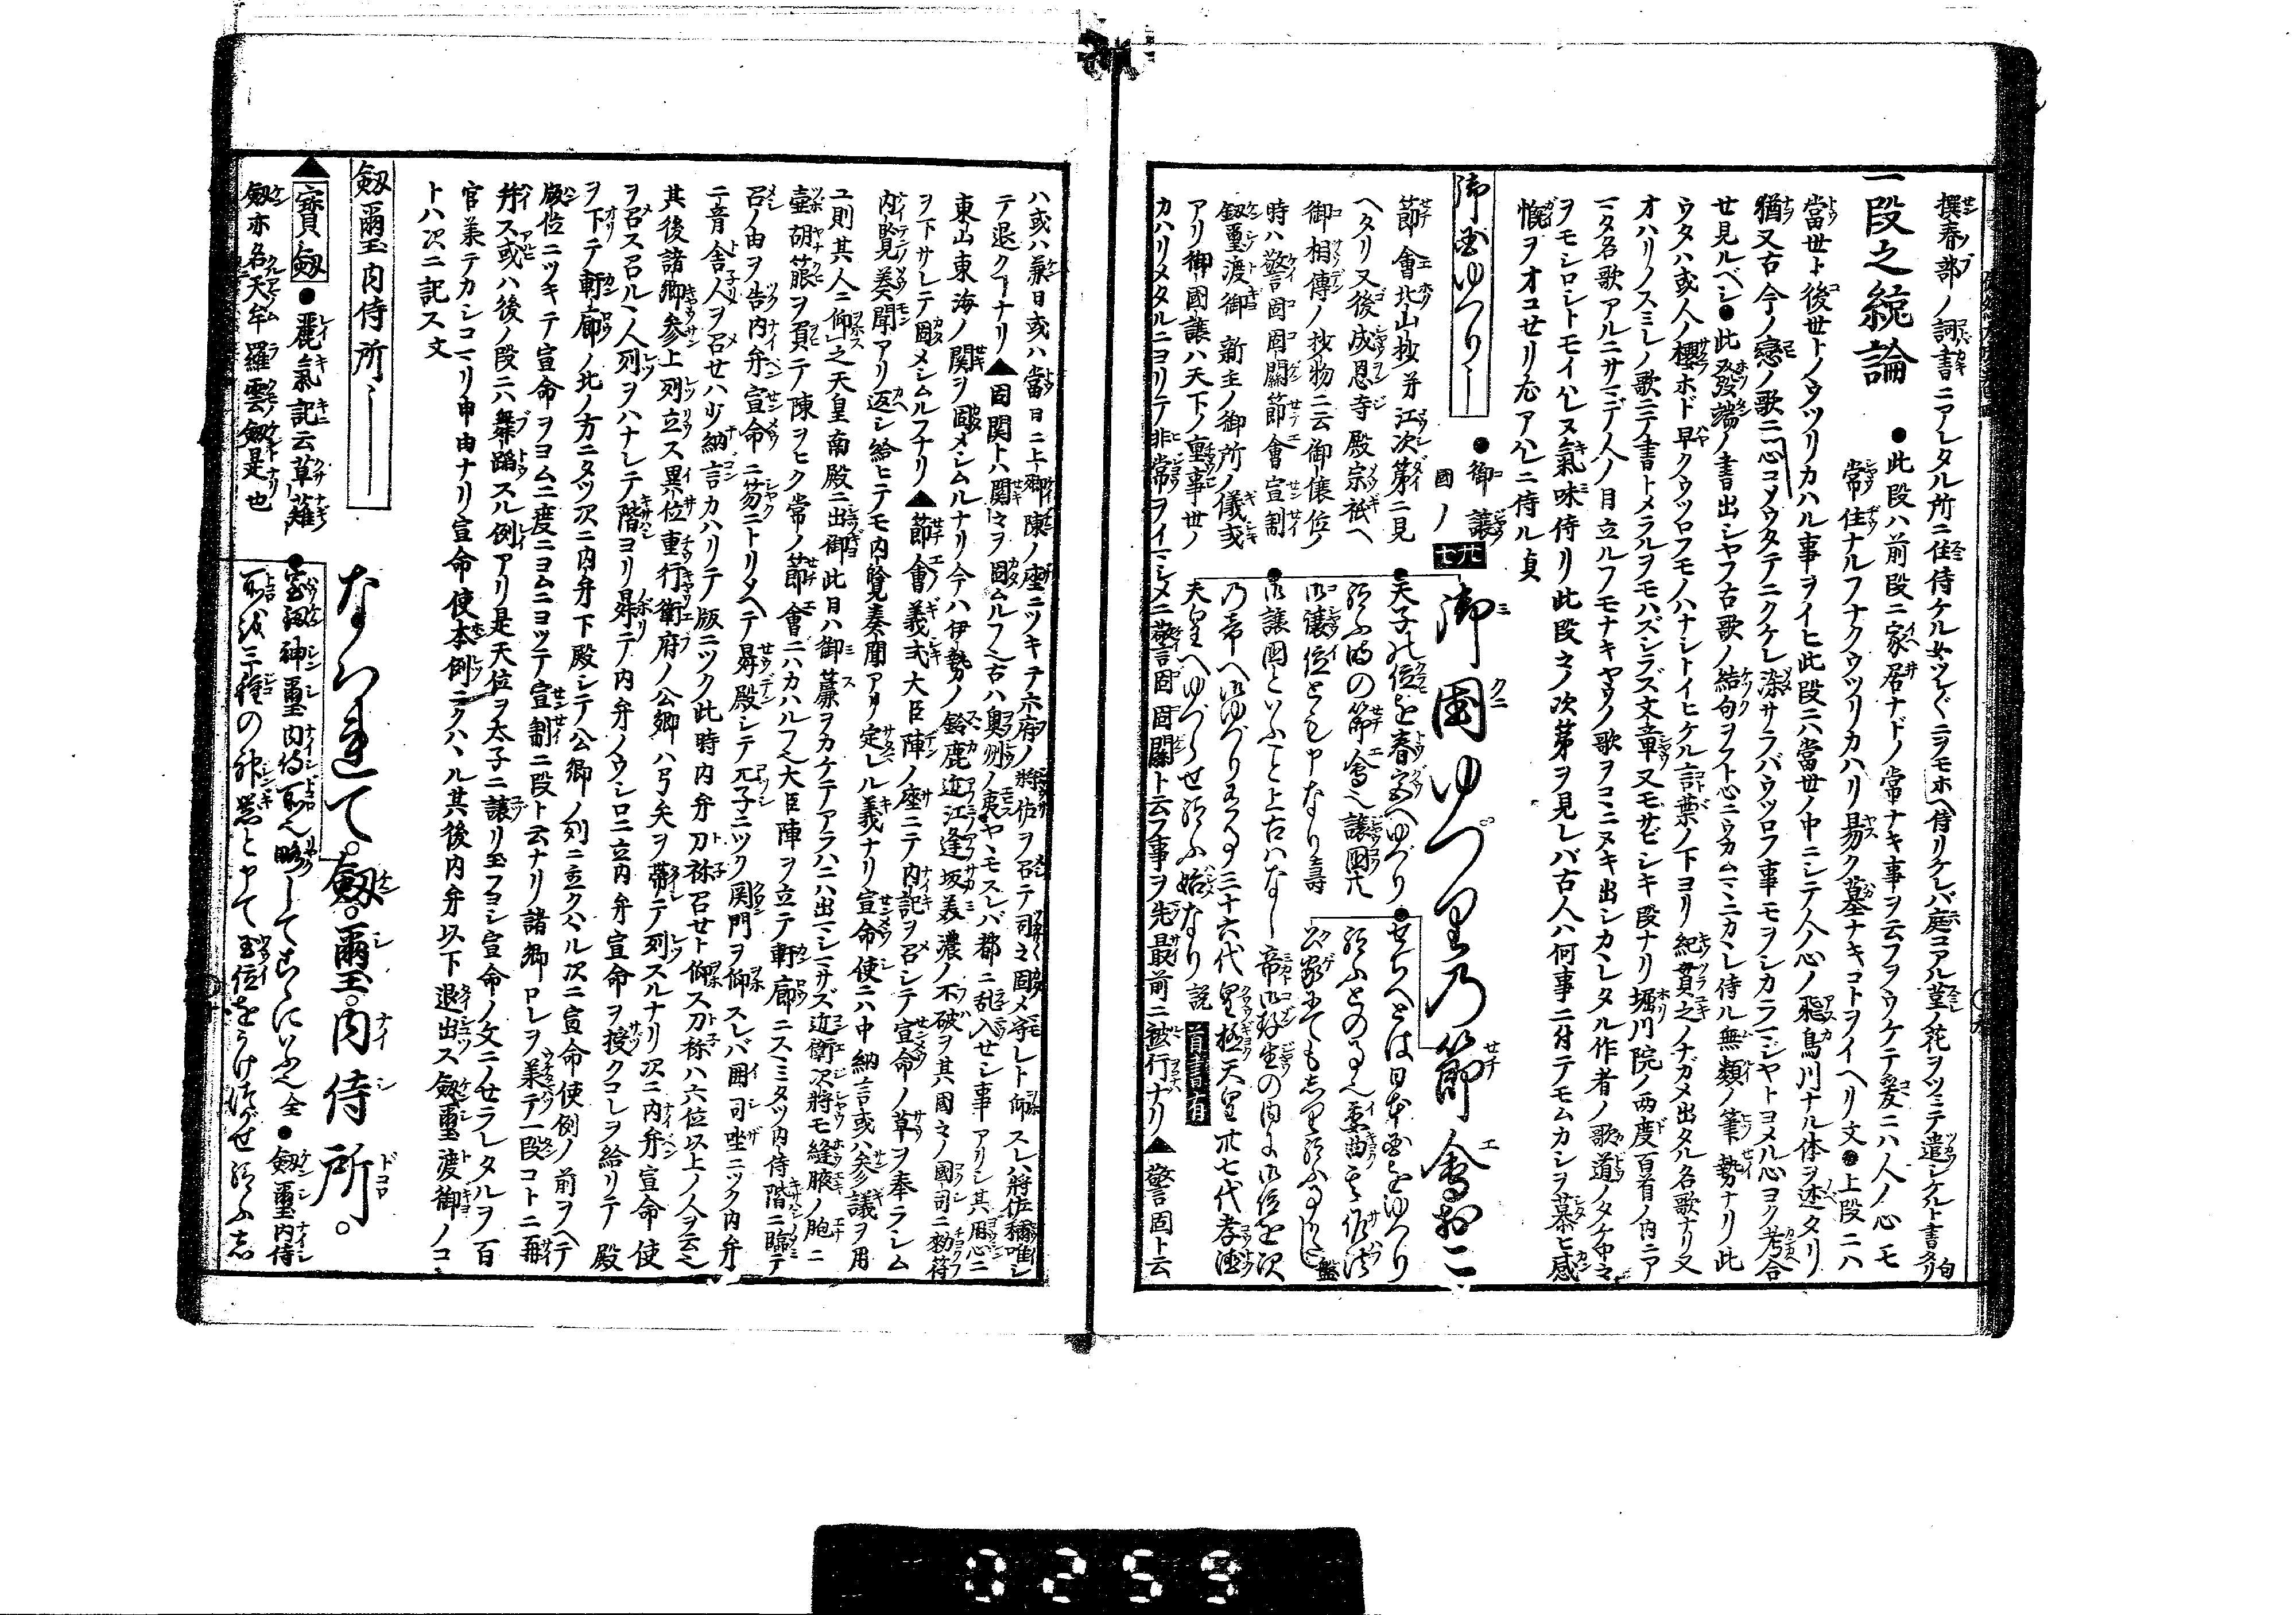 撰春部ノ詞書ニアレタル所ニ住侍ケル女ツレ〲ニヲモホヘ侍リケレバ庭コアル菫ノ花ヲツミテ遣シケルト書タリ
一段之統論
●此段ハ前段ニ家居ナドノ常ナキ事ヲ云フヲウケテ爰ニハ人ノ心モ
常住ナルフナクウツリカハリ易ク墓ナキコトヲイヘリ文●上段ニハ
當世ト後世トノウツリカハル事ヲイヒ此段ニハ當世ノ中ニシテ人〻心ノ飛鳥川ナル体ヲ述タリ
猶又古今ノ戀ノ歌ニ心コソウタテニクケレ染サラバウツロフ事モヲシカラマジヤトヨメル心ヨク考合
せ見ルベシ●此發端ノ書出シヤフ古歌ノ結句ヲフト心ニウカムマヽニカヽレ侍ル無類ノ筆勢ナリ此
ウタハ或人ノ櫻ホド早クウツロフモノハナシトイヒケル言葉ノ下ヨリ紀貫之ノナガメ出タル名歌ナリ又
オハリノスミレノ歌ニテ書トメラルヲモハズシラズ文章又モサビシキ段ナリ堀川院ノ両度百首ノ内ニア
マタ名歌アルニサマデ人ノ目立ルフモナキヤウノ歌ヲコヽニヌキ出シカヽレタル作者ノ歌道ノタケ中々
ヲモシロシトモイハレヌ氣味侍リ此段々ノ次第ヲ見レバ古人ハ何事ニ付テモムカシヲ慕ヒ感
慨ヲオコせリ尤アハレニ侍ル貞
御国ゆつり〻
●御譲
國ノ
廿七
御國ゆづりの節會おこ
節會北山抄并江次第ニ見
ヘタリ又後成恩寺殿宗祇ヘ
御相傳ノ抄物ニ云御讓位ノ
時ハ警固固關節會宣制
劔璽渡御新主ノ御所ノ儀或
アリ御國讓ハ天下ノ重事世ノ
カハリメタルニヨリテ非常ヲイマシメニ警固固關ト云フ事ヲ先最前ニ被行ナリ▲警固ト云
●天子の位を春宮へゆづり
給ふ時の節會也讓國共
●御讓國といふこと上古はなし帝御存生の内に御位を次
の帝へ御ゆづり有事三十六代皇極天皇卅七代孝徳
天皇へゆづらせ給ふ始なり説
首書有
ハ或ハ兼日或ハ當日ニ上卿陳ノ座ニツキテ六府ノ將佐ヲ召テ司々固メ守レト仰スレハ將佐稱唯シ
テ退クナリ▲固関トハ関々ヲ固ムルフ也古ハ奥州ノ夷ヤヽモスレバ都ニ乱入せシ事アリシ其用心ニ
東山東海ノ関ヲ固メシムルナリ今ハ伊勢ノ鈴鹿近江逢坂美濃ノ不破ヲ其國々ノ國司ニ勅符
ヲ下サレテ固メシムルフナリ▲節會義式大臣陣ノ座ニテ内記ヲ召シテ宣命ノ草ヲ奉ラシム
内覽奏聞アリ返シ給ヒテモ内覽奏聞アリ定レル義ナリ宣命使ニハ中納言或ハ參議ヲ用
ユ則其人ニ仰之天皇南殿ニ出御此日ハ御簾ヲカケテアラハニハ出マシマサズ近衛次將モ縫腋ノ胞ニ
壷胡簶ヲ負テ陳ヲヒク常ノ節會ニハカハルフ也大臣陣ヲ立テ軒廊ニスヽミタツ内侍階ニ臨テ
召ノ由ヲ告内弁宣命ニ笏ニトリソヘテ昇殿シテ兀子ニツク関門ヲ仰スレバ囲司坐ニツク内弁
二音舎人ヲ召せハ少納言カハリテ版ニツク此時内弁刀祢召せト仰ス刀祢ハ六位以上ノ人ヲ云也
其後諸卿参上列立ス異位重行衛府ノ公卿ハ弓矢ヲ帶テ列スルナリ次ニ内弁宣命使
ヲ召ス召ルヽ人列ヲハナレテ階ヨリ昇テ内弁ノウシロニ立内弁宣命ヲ授クコレヲ給リテ殿
ヲ下テ軒廊ノ北ノ方ニタツ次ニ内弁下殿シテ公卿ノ列ニ立クハヽル次ニ宣命使例ノ前ヲヘテ
版位ニツキテ宣命ヲヨム二度ニヨムニヨツテ宣制二段ト云ナリ諸卿ヲ兼テ一段コトニ再
拜ス或ハ後ノ段ニハ舞蹈スル例アリ是天位ヲ太子ニ讓リ玉フヨシ宣命ノ文ニノせラレタルヲ百
官兼テカシコマリ申由ナリ宣命使本例ニクハヽル其後内弁以下退出ス劔璽渡御ノコ
トハ次ニ記ス文
劔璽内侍所〻
なはれて。劔。璽。内侍所。
▲寶劔●麗氣記云草薙
劔亦名天牟羅雲劔是也
●宝劔神璽内侍所也略してかくいふ也全●劔璽内侍
所は三種の神器とて王位をうけつがせ給ふ志
0259